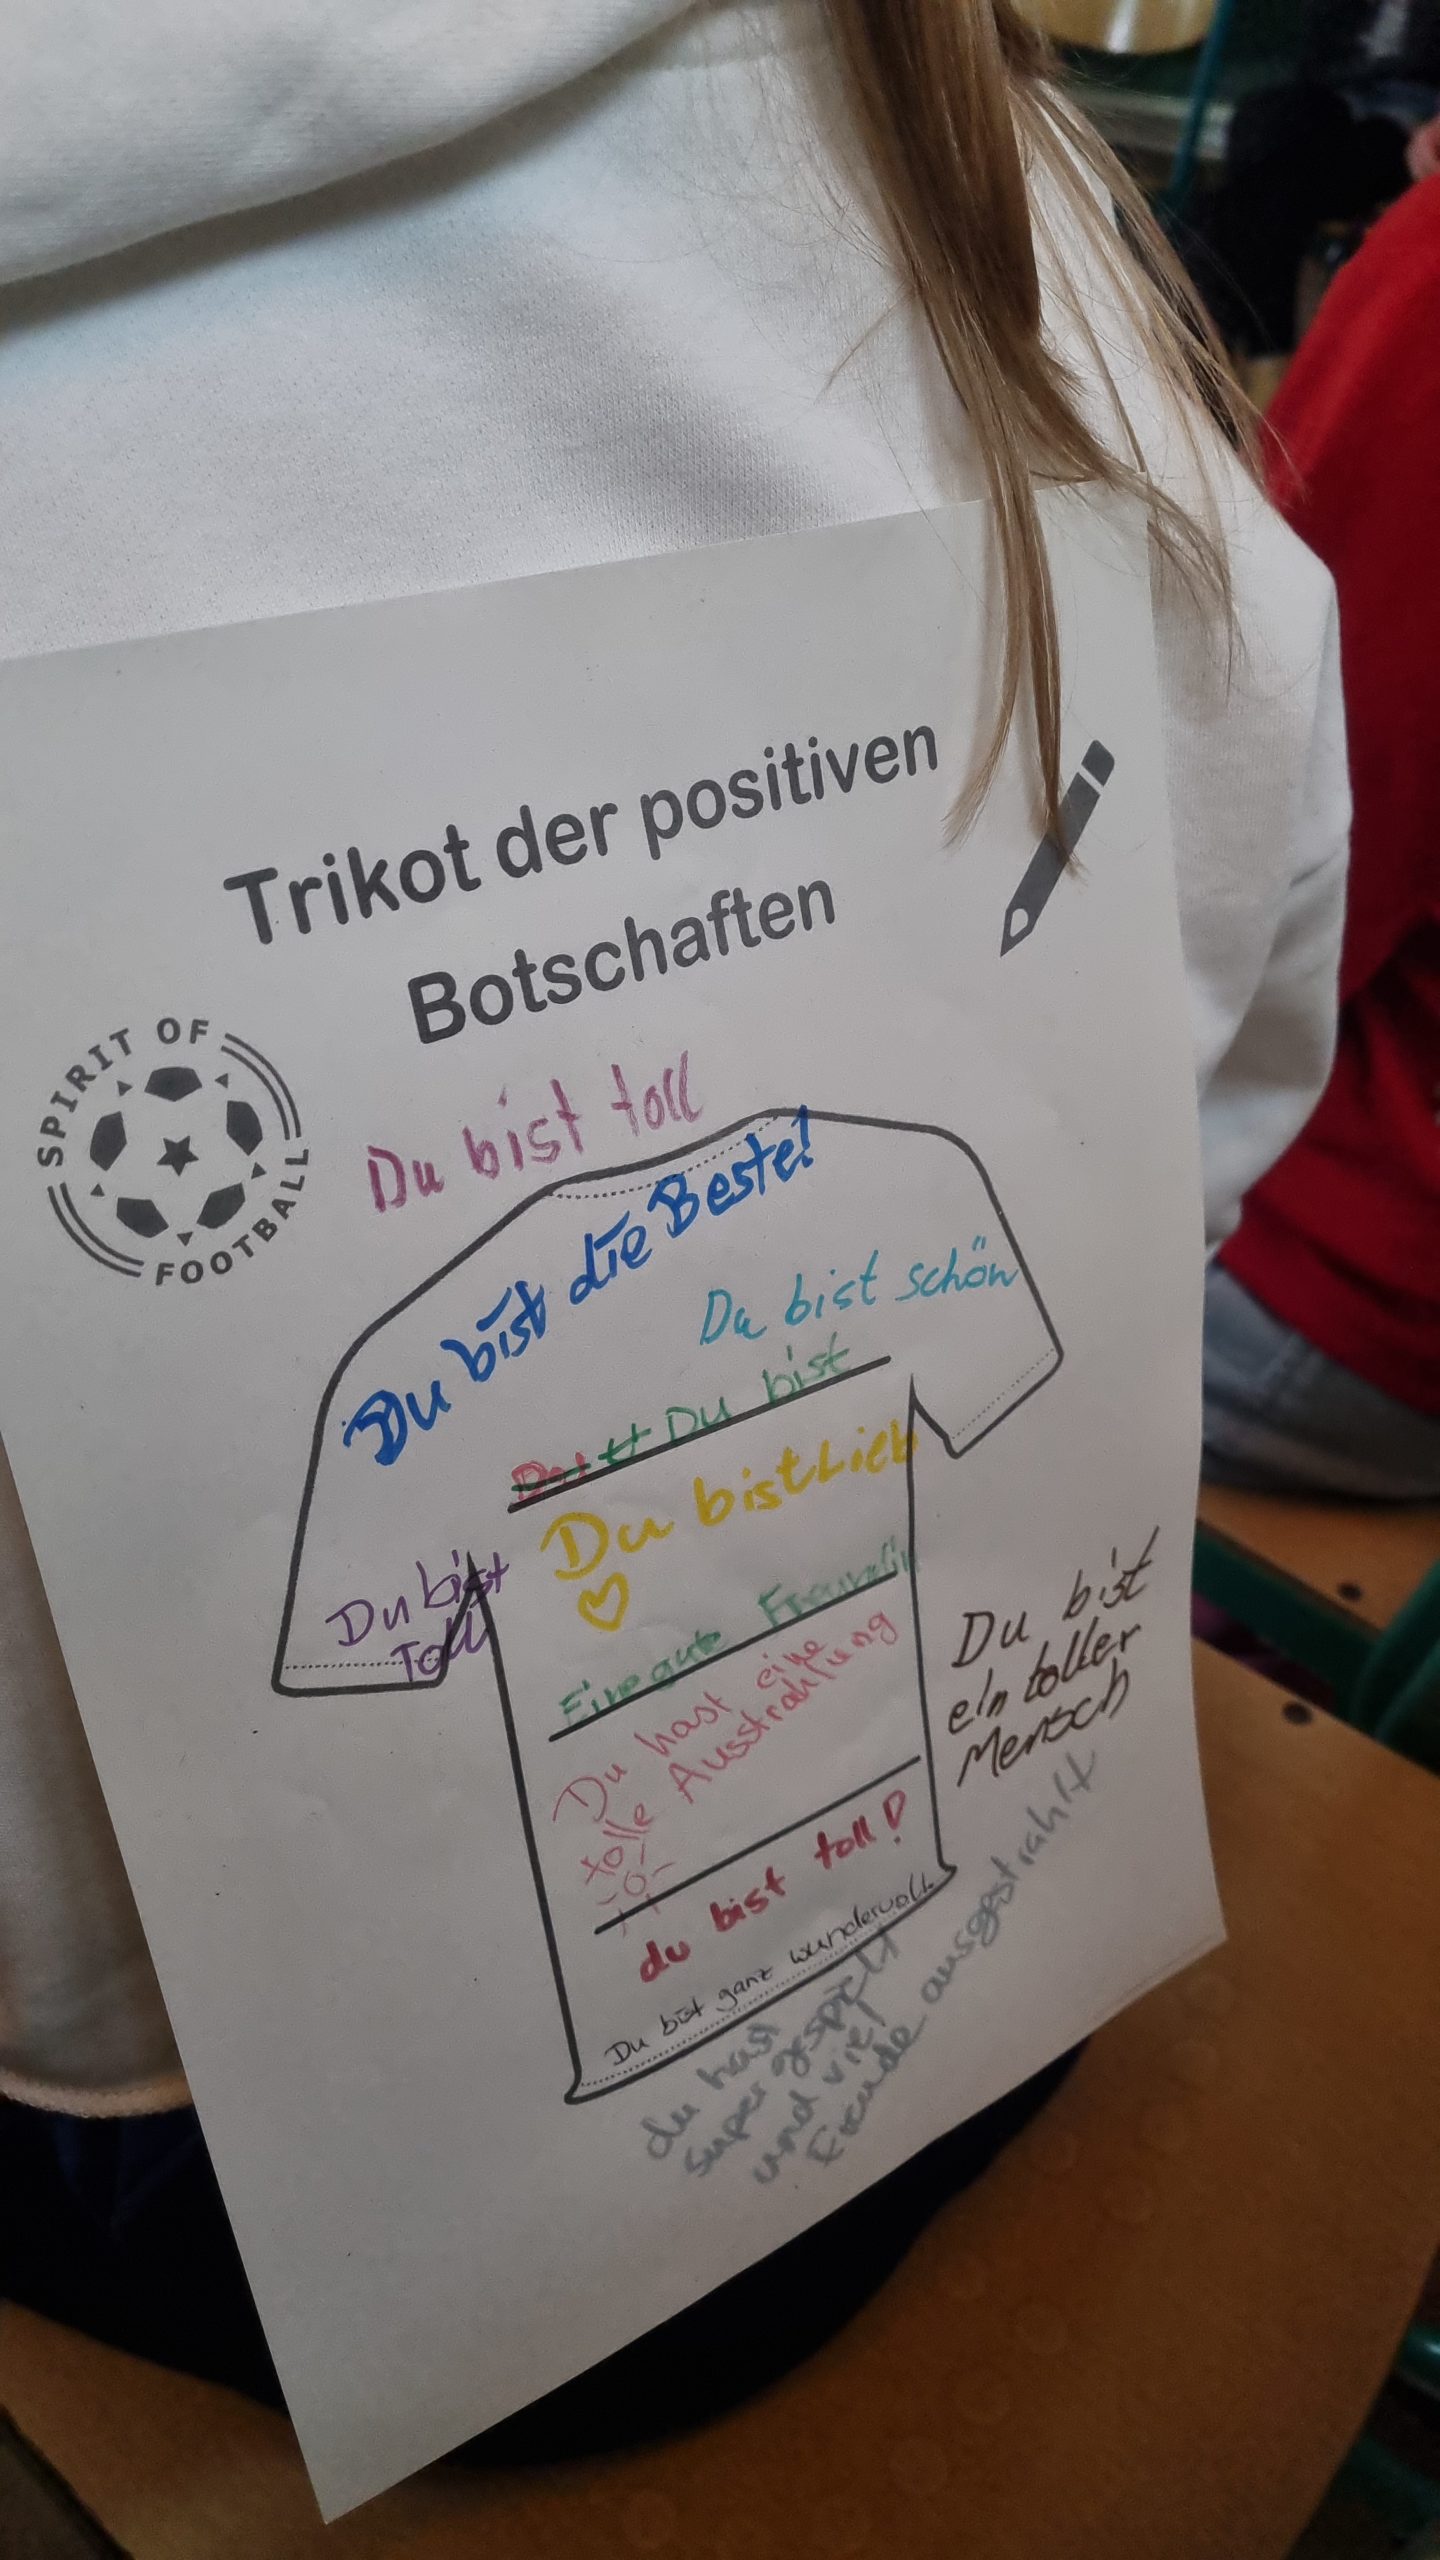 Trikot der positiven
Botschaften
SPIRIT OF
FOOTBALL
Du bist toll
Du bist die Beste!
Du bist schön
Du bist
Du bist Lieb
Du bist
Toll
Eine gute Freundin
Du hast eine
tolle Ausstrahlung
Du bist
ein toller
Mensch
du bist toll!
Du bist ganz wundervoll.
du hast
super gespielt
und viel
Freude ausgestrahlt